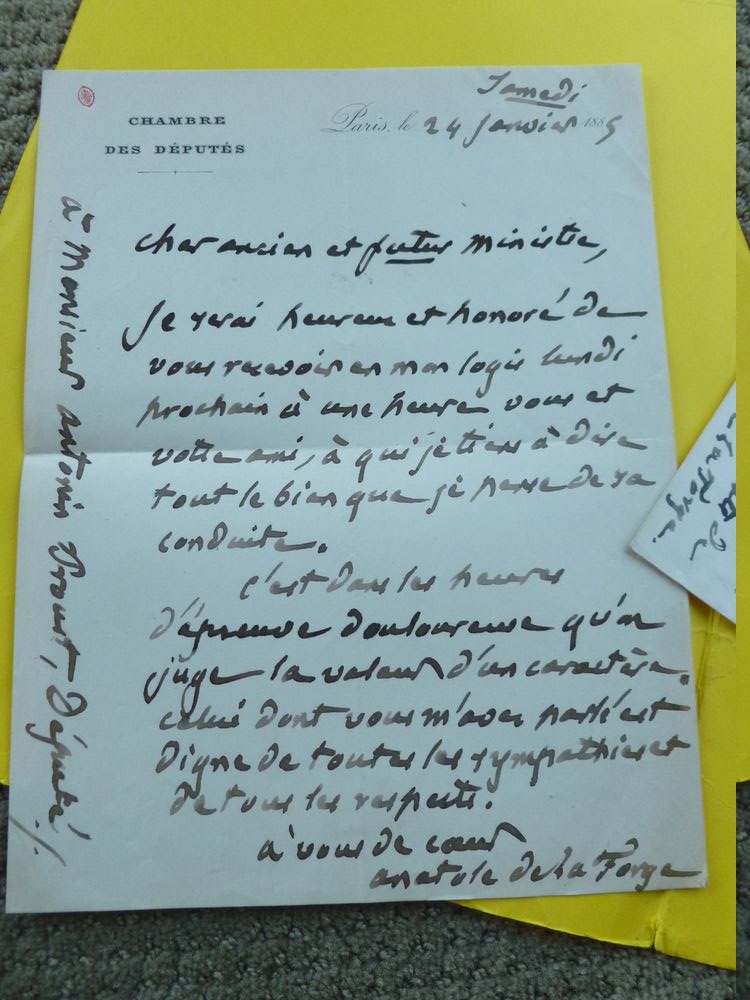 CHAMBRE
DES DÉPUTÉS
Samedi
Paris, le 24 Janvier 1885
cher ancien et futur ministre,
Je serai heureux et honoré de
vous recevoir en mon logis lundi
prochain à une heure vous et
votre ami, à qui je tiens à dire
tout le bien que je pense de sa
conduite.
c'est dans les heures
d'épreuve douloureuse qu'on
juge la valeur d'un caractère.
celui dont vous m'avez parlé est
digne de toutes les sympathies et
de tous les respects.
à vous de cœur
anatole de La Forge
à Monsieur antonin Proust, Député ./.